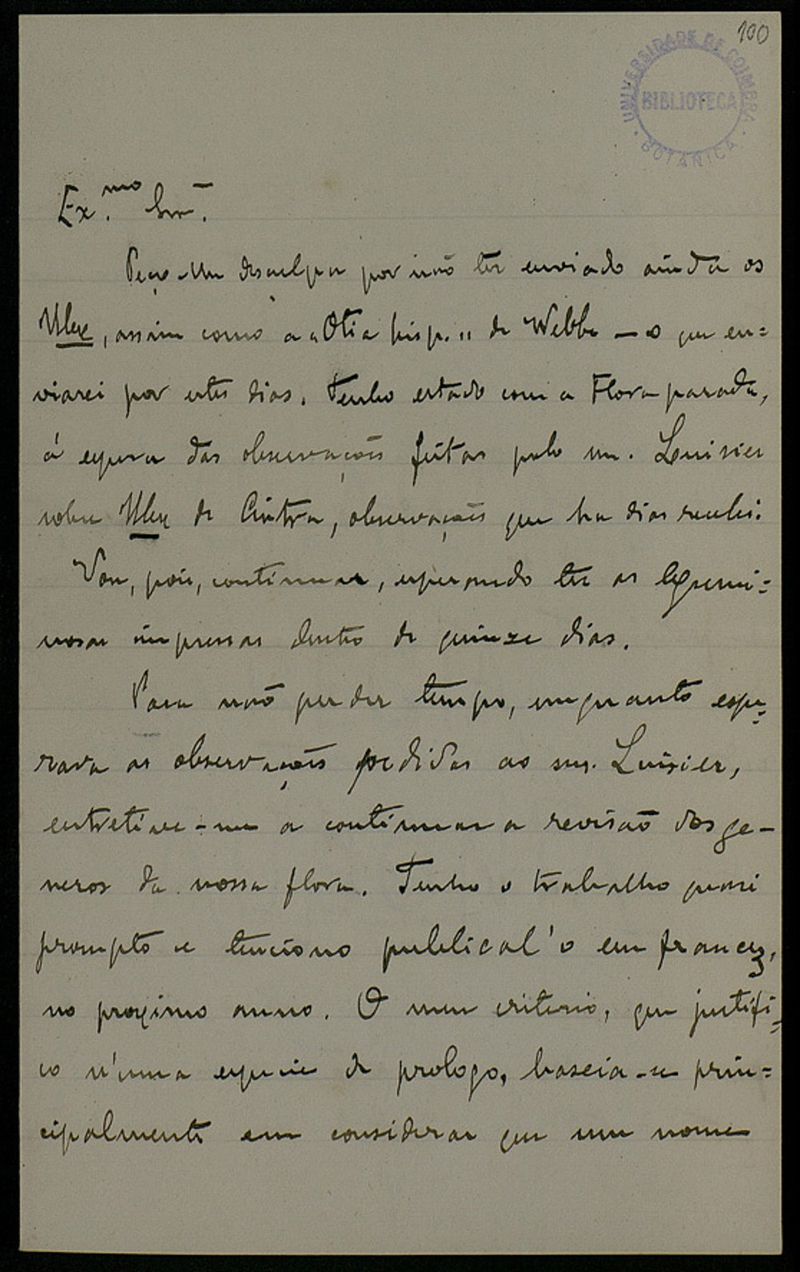 100
UNIVERSIDADE DE COIMBRA
BIBLIOTECA
BOTANICA
Ex.mo Snr.
Peço-lhe desculpa por não ter enviado ainda os
Ulex, assim como a „Otia hisp." de Webb — o que en=
viarei por estes dias. Tenho estado com a Flora parada,
á espera das observações feitas pelo snr. Luisier
sobre Ulex de Cintra, observações que ha dias recebi.
Vou, pois, continuar, esperando ter as Legumi=
nosas impressas dentro de quinze dias.
Para não perder tempo, emquanto espe=
rava as observações pedidas ao snr. Luisier,
entretive-me a continuar a revisão dos ge-
neros da nossa flora. Tenho o trabalho quasi
prompto e tenciono publical'o em francez,
no proximo anno. O meu criterio, que justifi=
co n'uma especie de prologo, baseia-se prin=
cipalmente em considerar que um nome